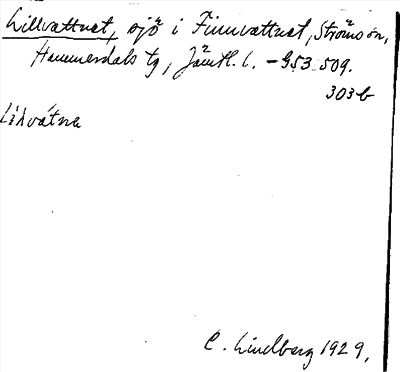 Lillvattnet, sjö i Finnvattnet, Ströms sn,
Hammerdals tg, Jämtl. l. – G53 509.
303b
C. Lindberg 1929.